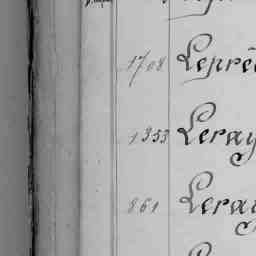 1708 Leprê
1353 Leray
861 Leray